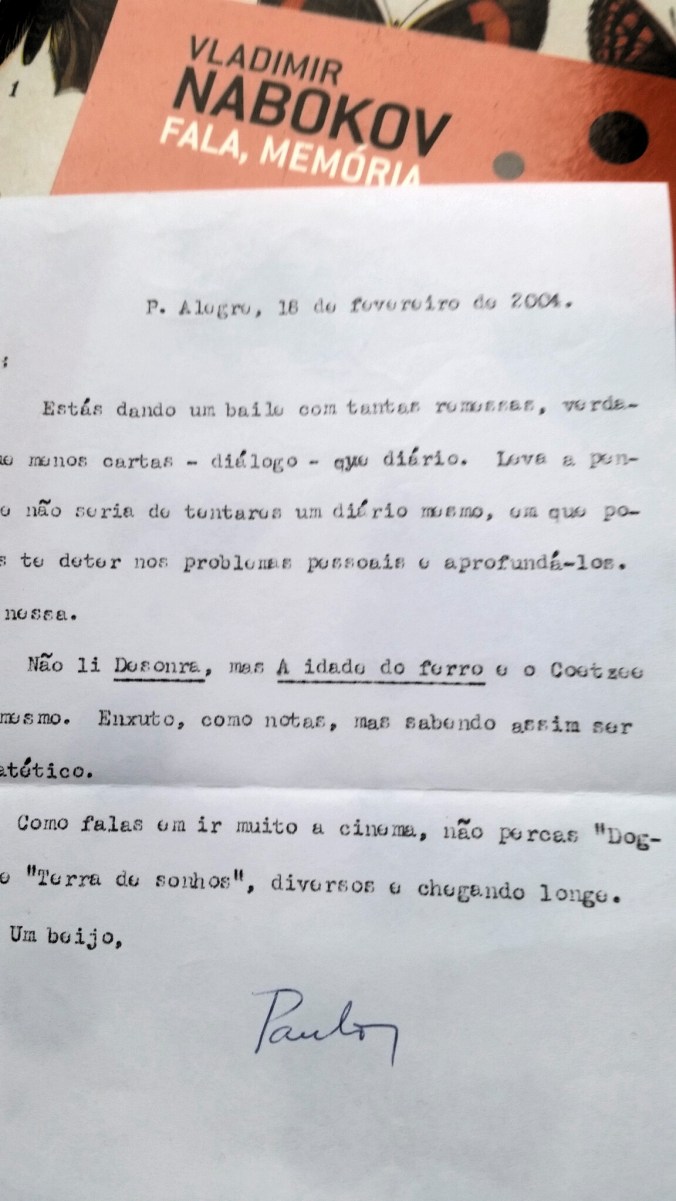 1
VLADIMIR
NABOKOV
FALA, MEMÓRIA
P. Alegre, 16 de fevereiro de 2004.
:
Estás dando um baile com tantas remessas, verda-
menos cartas - diálogo - que diário. Leva a pen-
não seria de tentares um diário mesmo, em que po-
s te deter nos problemas pessoais e aprofundá-los.
nessa.
Não li Desonra, mas A idade do ferro e o Coetzee
mesmo. Enxuto, como notas, mas sabendo assim ser
atético.
Como falas em ir muito a cinema, não percas "Dog-
e "Terra de sonhos", diversos e chegando longe.
Um beijo,
Paulo